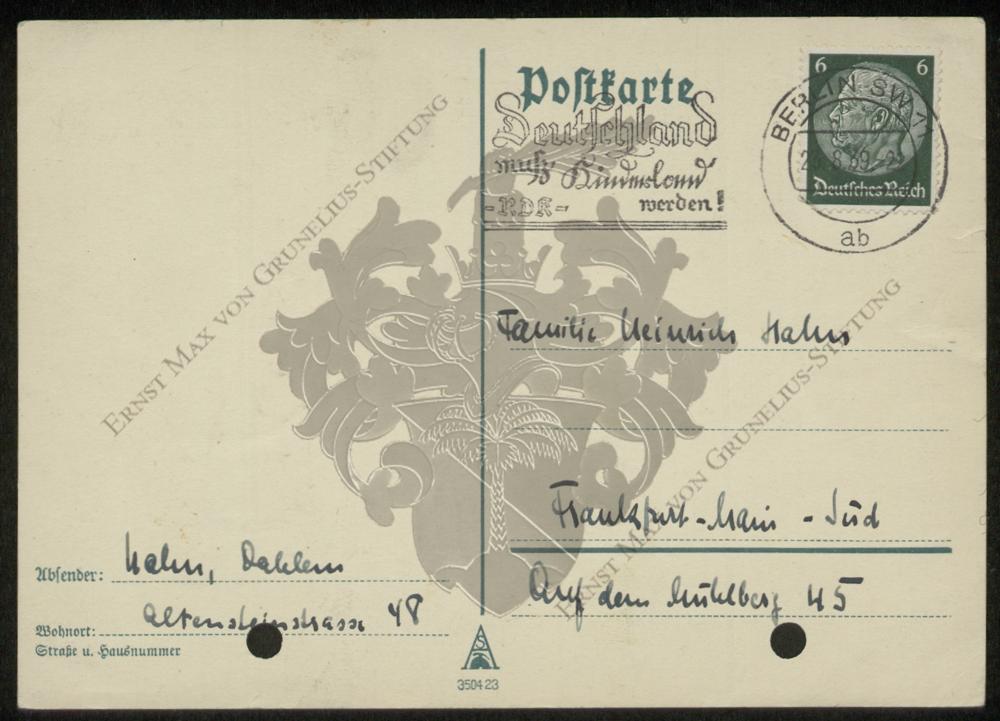 Postkarte
Deutschland
muß Kinderland
-RDK- werden!
6 6
Deutsches Reich
BERLIN SW 11
ab
ERNST MAX VON GRUNELIUS-STIFTUNG
ERNST MAX VON GRUNELIUS-STIFTUNG
Familie Heinrich Hahn
Frankfurt-Main - Süd
Auf dem Mühlberg 45
Absender: Hahn, Dahlem
Altensteinstrasse 48
Wohnort:
Straße u. Hausnummer
350423